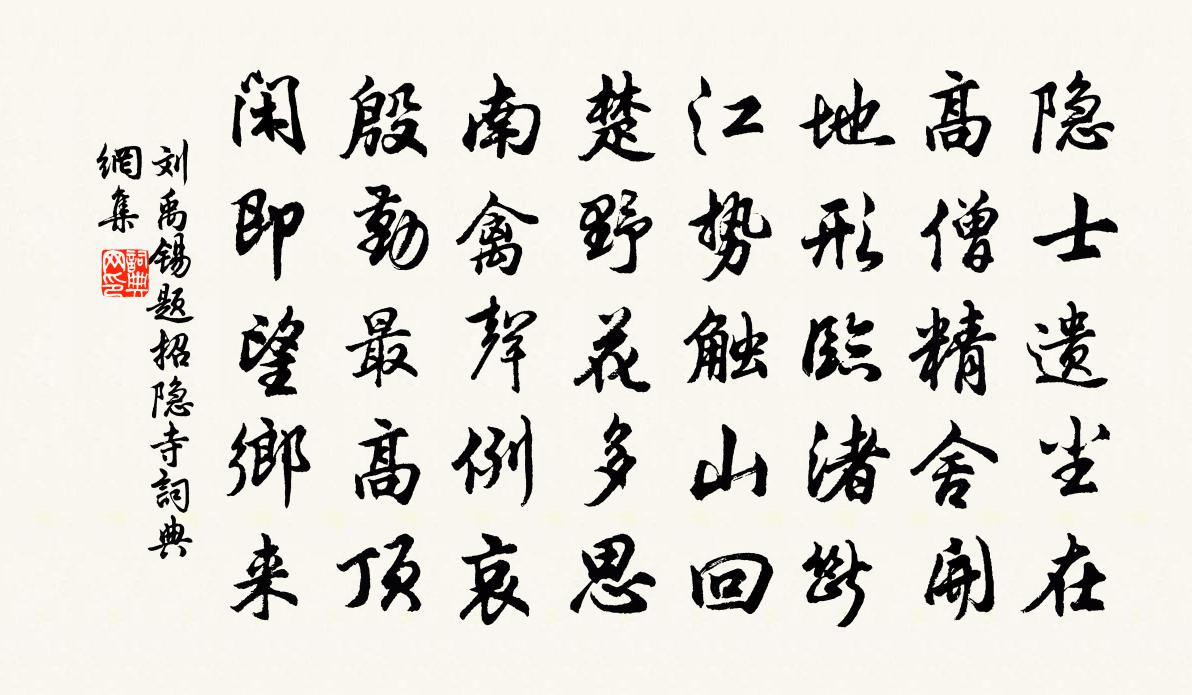 隐士遗尘在
高僧精舍開
地形臨渚斷
江势触山回
楚野花多思
南禽聲例哀
殷勤最高顶
闲即望鄉来
刘禹锡题招隐寺詞典
網集
詞典
网印